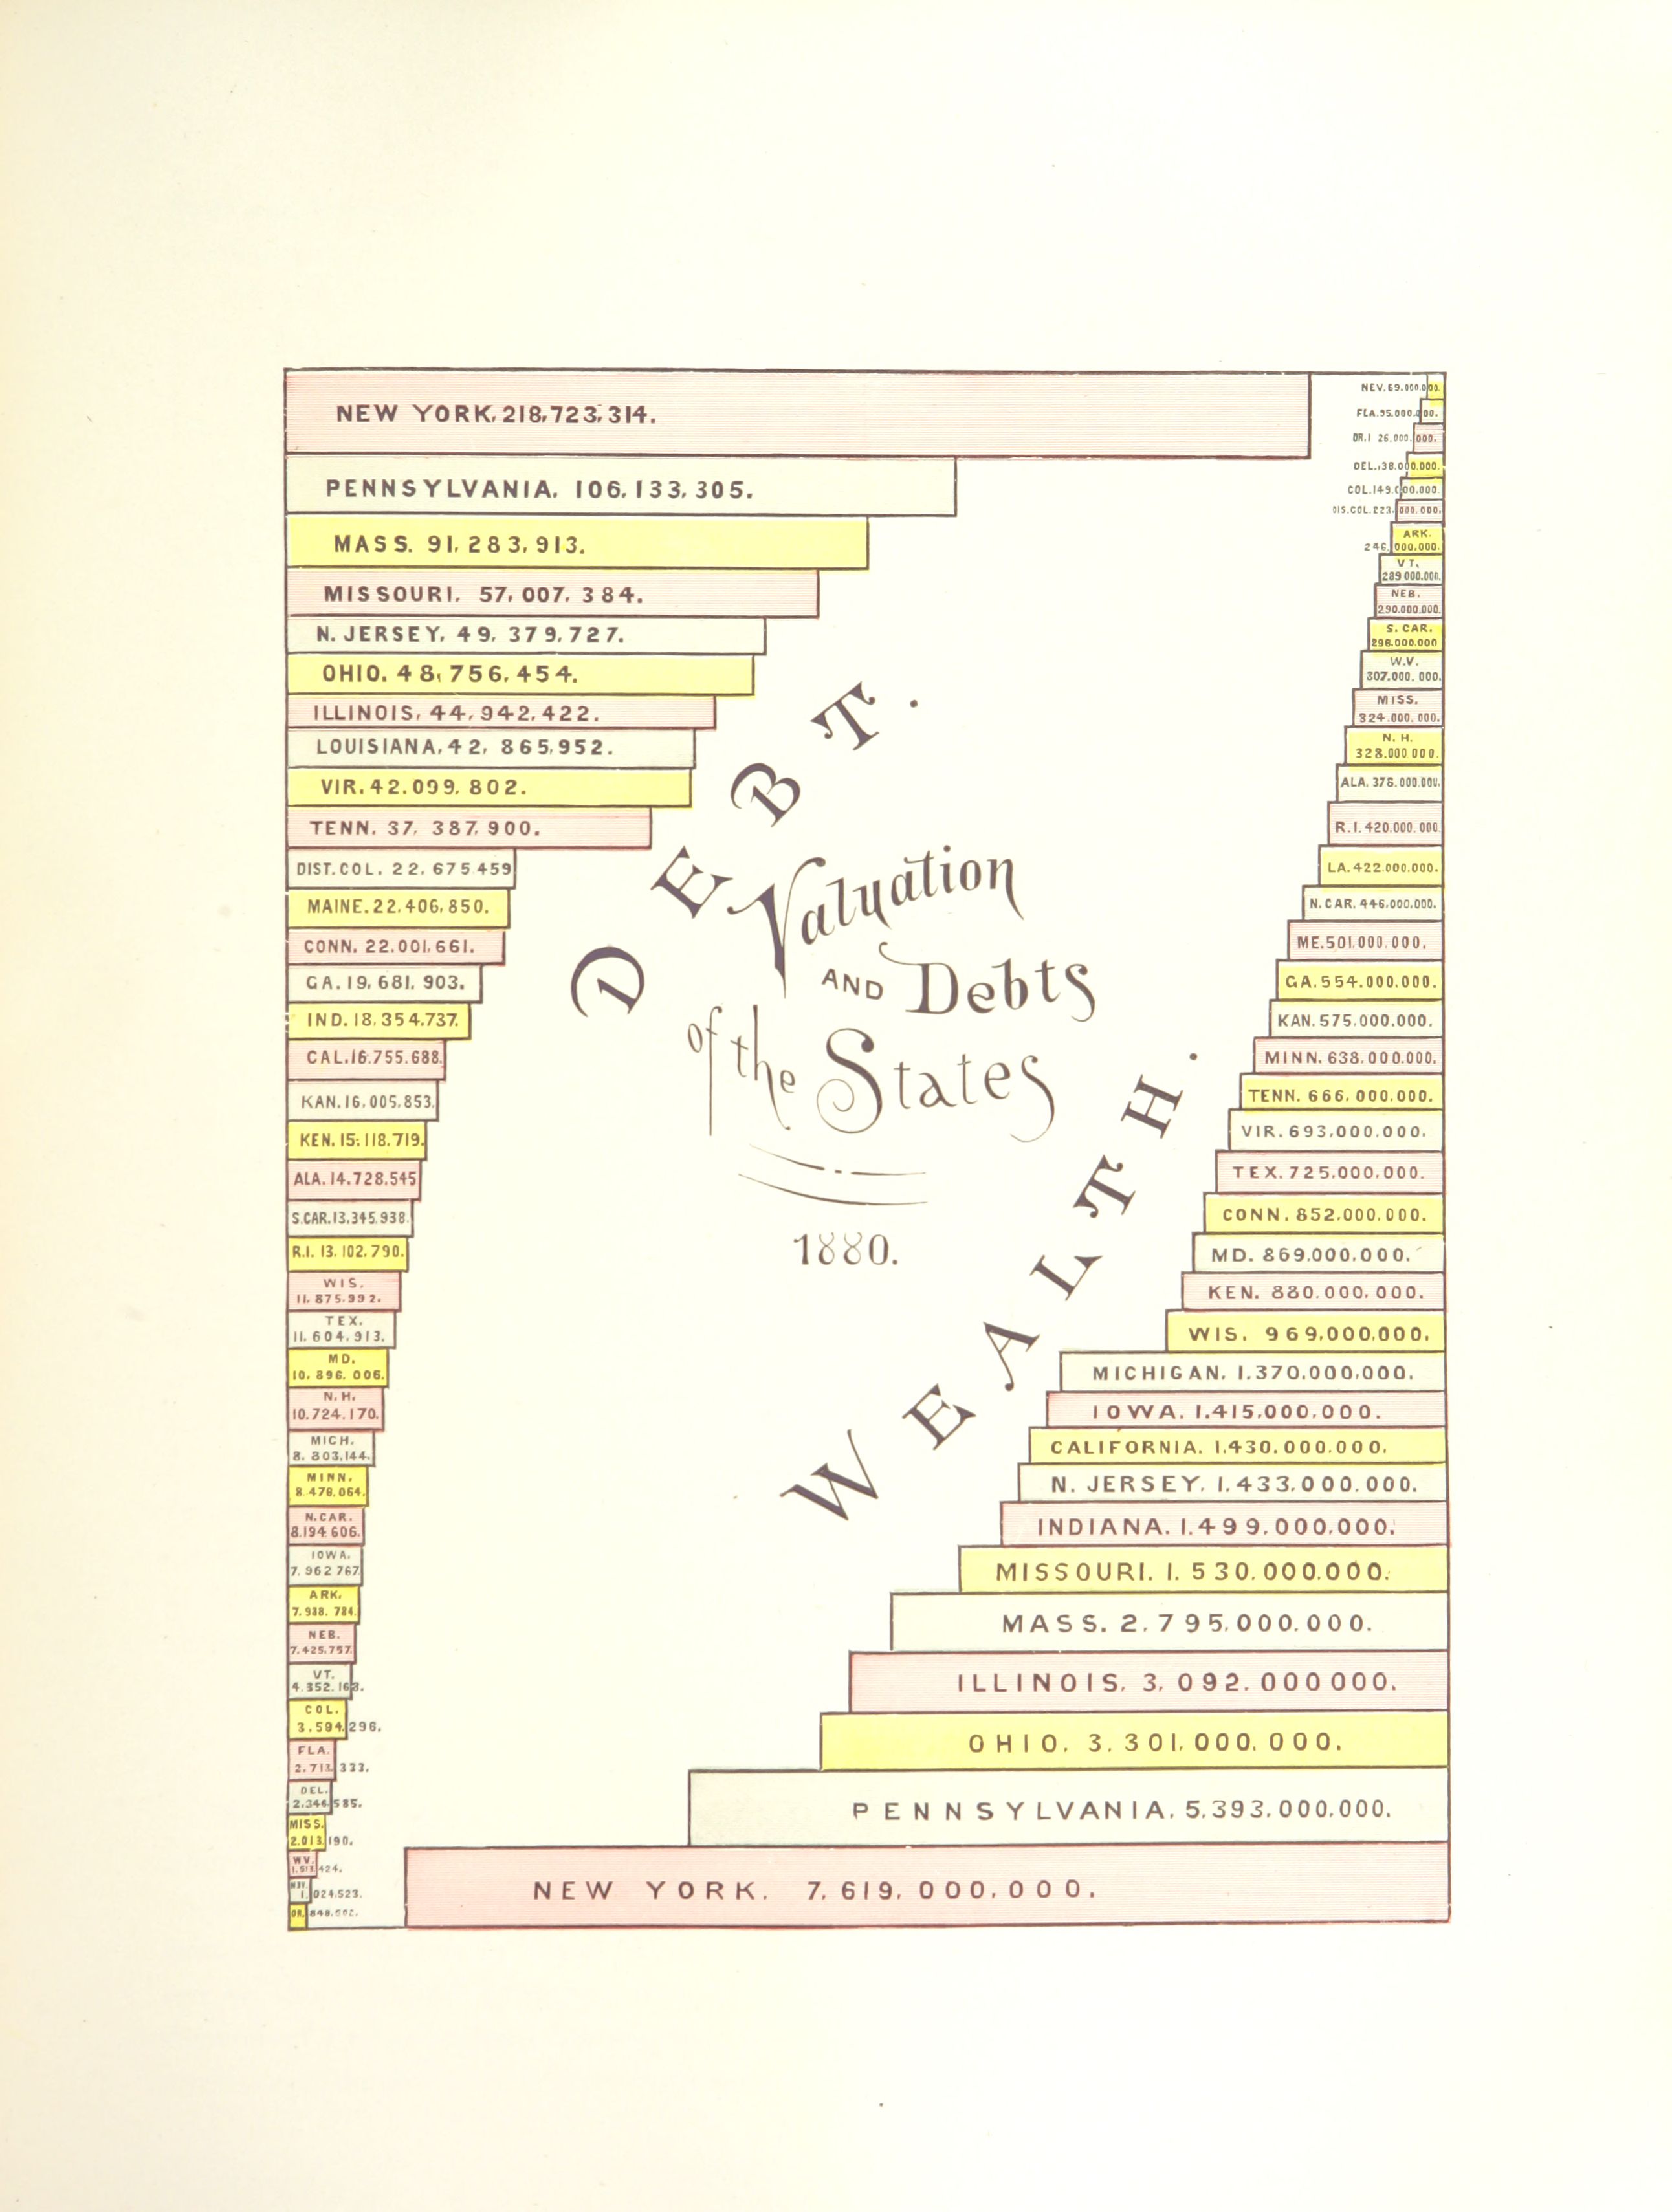 NEW YORK, 218,723,314.
PENNSYLVANIA. 106,133,305.
MASS. 91,283,913.
MISSOURI. 57,007,384.
N. JERSEY, 49,379,727.
OHIO. 48,756,454.
ILLINOIS, 44,942,422.
LOUISIANA, 42,865,952.
VIR. 42.099.802.
TENN. 37,387,900.
DIST. COL. 22,675.459
MAINE. 22,406,850.
CONN. 22.001,661.
GA. 19,681,903.
IND. 18,354,737.
CAL. 16.755.688.
KAN. 16.005.853.
KEN. 15,118.719.
ALA. 14.728.545
S.CAR. 13.345.938.
R.I. 13.102.790.
WIS.
11.875.992.
TEX.
11.604.913.
MD.
10.896.006.
N. H.
10.724.170.
MICH.
8.803.144.
MINN.
8.476.064.
N.CAR.
8.194.606.
IOWA.
7.962.767.
ARK.
7.988.784.
NEB.
7.425.757.
VT.
4.352.163.
COL.
3.594.296.
FLA.
2.713.333.
DEL.
2.346.585.
MISS.
2.013.190.
W.V.
424.
1.024.523.
OR. 848.
DEBT.
Valuation
AND Debts
of the States
1880.
WEALTH.
NEV. 69.000.000.
FLA. 95.000.000.
OR. 1 26.000.000.
DEL. 138.000.000.
COL. 149.000.000.
DIS. COL. 223.000.000.
ARK.
246.000.000.
VT.
289 000.000.
NEB.
290.000.000.
S. CAR.
296.000.000
W.V.
307.000.000.
MISS.
324.000.000.
N. H.
328.000 000.
ALA. 378.000.000.
R.I. 420.000.000.
LA. 422.000.000.
N. CAR. 446.000.000.
ME. 501.000.000.
GA. 554.000.000.
KAN. 575.000.000.
MINN. 638.000.000.
TENN. 666,000.000.
VIR. 693,000,000.
TEX. 725,000,000.
CONN. 852,000,000.
MD. 869.000,000.
KEN. 880.000,000.
WIS. 969,000,000.
MICHIGAN. 1.370.000,000.
IOWA. 1.415,000,000.
CALIFORNIA. 1.430.000.000.
N. JERSEY. 1.433.000.000.
INDIANA. 1.499.000,000.
MISSOURI. 1.530.000.000.
MASS. 2.795.000.000.
ILLINOIS, 3,092.000000.
OHIO. 3.301.000.000.
PENNSYLVANIA. 5,393,000,000.
NEW YORK. 7,619,000,000.